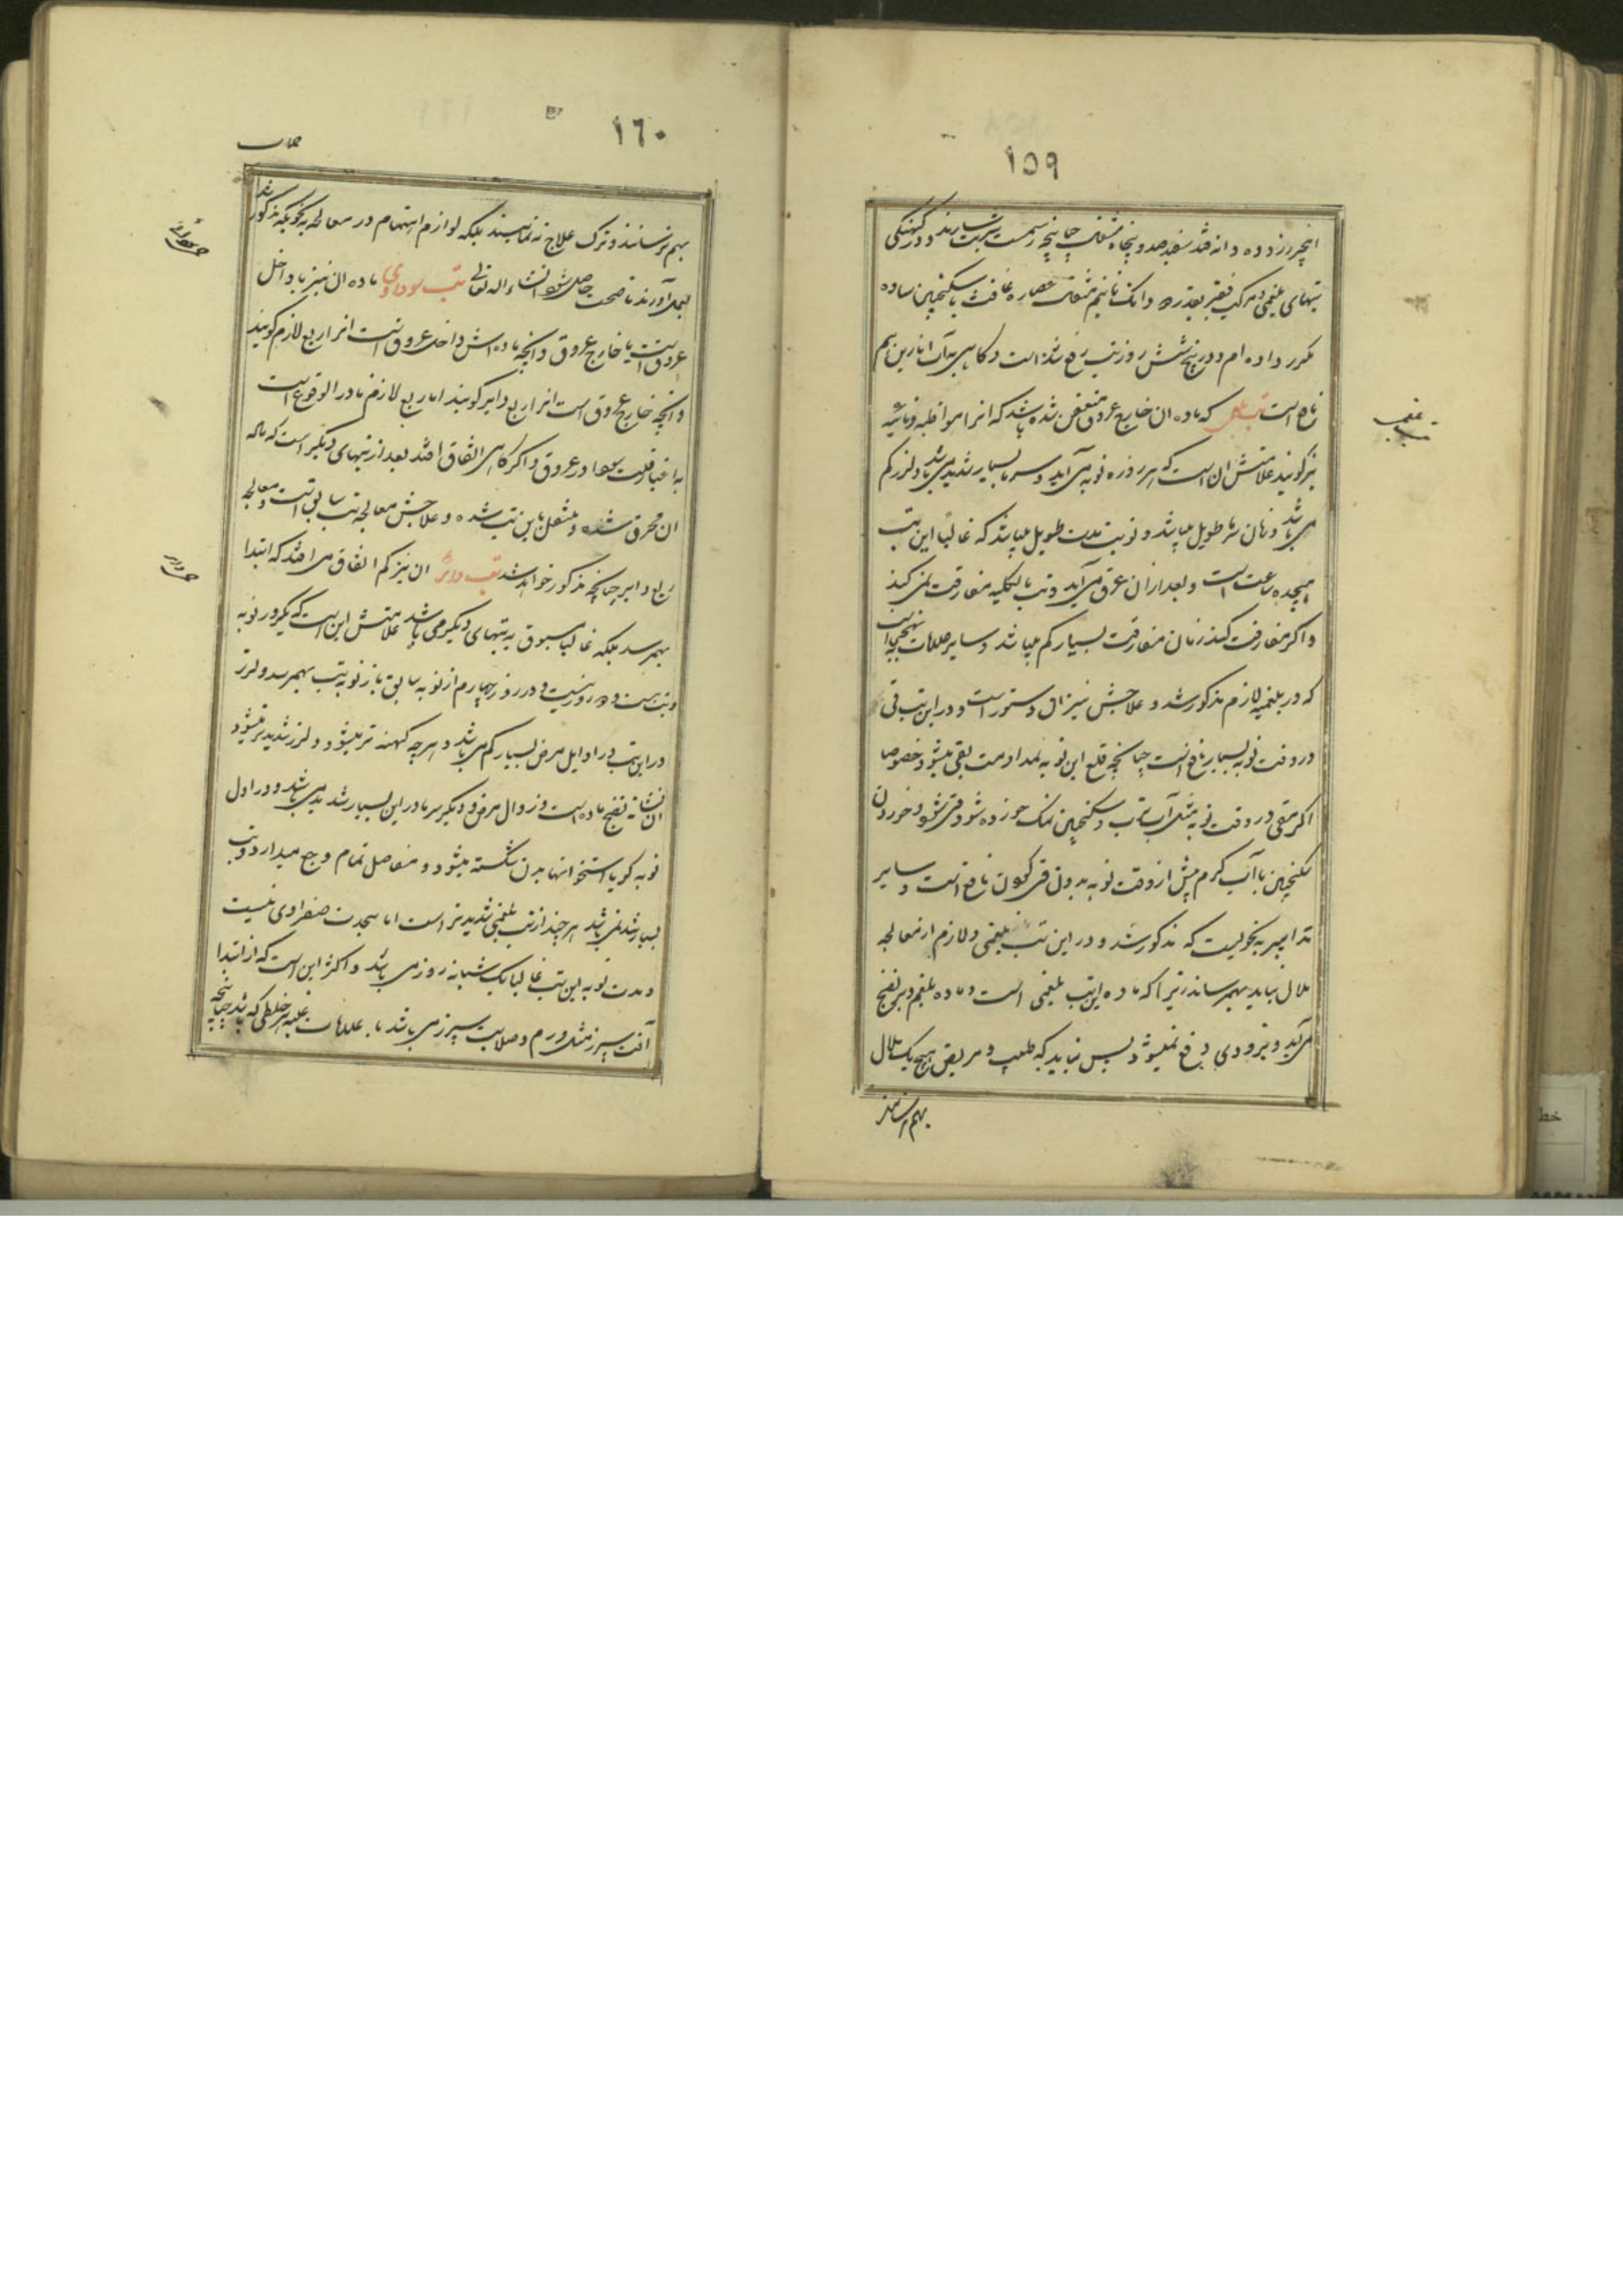 ١٥٩
انجیر زرد ده دانه قند سفید صد و پنجاه مثقال چنانچه رسمست شربت سازند و در کهنگی
تبهای بلغمی و مرکب فقیر بقدر دو دانک تا نیم مثقال عصاره غافث با سکنجبین ساده
مکرر داده ام و در پنج شش روز تب رفع شده است و کاهی به آب انارین هم
نافع است تب بلغمی که ماده ان خارج عروق متعفن شده باشد که انرا مواظبه و نائبه
نیز کویند علامتش ان است که هر روزه نوبه می آید و سرما بسیار شدید می باشد و لرز کم
می باشد و زمان سرما طویل میباشد و نوبت تب مدت طویل میباشد که غالبا این تب
هیجده ساعت است و بعد از ان عرق می آید و تب بالکلیه مفارقت نمی کند
و اکر مفارقت کند زمان مفارقت بسیار کم میباشد و سایر علامات بنهجی است
که در بلغمیه لازم مذکور شد و علاجش نیز ان دستور است و در این تب قی
در وقت نوبه بسیار نافع است چنانچه قلع این نوبه بمداومت بقی میشود خصوصا
اکر مقی در وقت نوبه مثل آب شبت و سکنجبین نمک خورده شود و قی شود و خوردن
سکنجبین با آب کرم پیش از وقت نوبه بدون قی کردن نافع است و سایر
تدابیر به نحویست که مذکور شد و در این تب بلغمی و لازم از معالجه
ملال نباید بهمرسانند زیرا که ماده این تب بلغمی است و ماده بلغم دیر نضج
می آید و بزودی دفع نمیشود پس نباید که طبیب و مریض هیچ یک ملال
بهم رسانند
١٦٠
بهم رسانند و ترک علاج نه نمایند بلکه لوازم اهتمام در معالجه به نحویکه مذکور شد
بعمل آورند تا صحت حاصل شود انشاء الله تعالی تب سوداوی ماده ان نیز یا داخل
عروق است یا خارج عروق و انچه ماده اش داخل عروق است انرا ربع لازم کویند
و انچه خارج عروق است انرا ربع دایر کویند اما ربع لازم نادر الوقوع است
به اعتبار قلت سودا در عروق و اکر کاهی اتفاق افتد بعد از تبهای دیکر است که ماده
ان محرق شده و منتقل باین تب شده و علاجش معالجه تب سابق است و معالجه
ربع دایر چنانچه مذکور خواهد شد تب دائر ان نیز کم اتفاق می افتد که ابتدا
بهم رسد بلکه غالبا مسبوق به تبهای دیکر می باشد علامتش این است که یکروز نوبه
و تب هست و دو روز نیست و در روز چهارم از نوبه سابق باز نوبه تب بهمرسد و لرز
در این تب در اوایل مرض بسیار کم می باشد و هر چه کهنه تر میشود و لرز شدید تر میشود
ان نشانه نضج ماده است و زوال مرض و دیکر سرما در این بسیار شدید می باشد و در اول
نوبه کویا استخوانهای بدن شکسته میشود و مفاصل تمام وجع میدارد و تب
بسیار شدید نمی باشد هر چند از تب بلغمی شدیدتر است اما بحدت صفراوی نیست
و مدت نوبه این تب غالبا یک شبانه روز می باشد و اکثر این است که از ابتدا
آفت سپرز مثل ورم و صلابت سپرز می باشد با علامات غلبه هر خلطی که باشد چنانچه